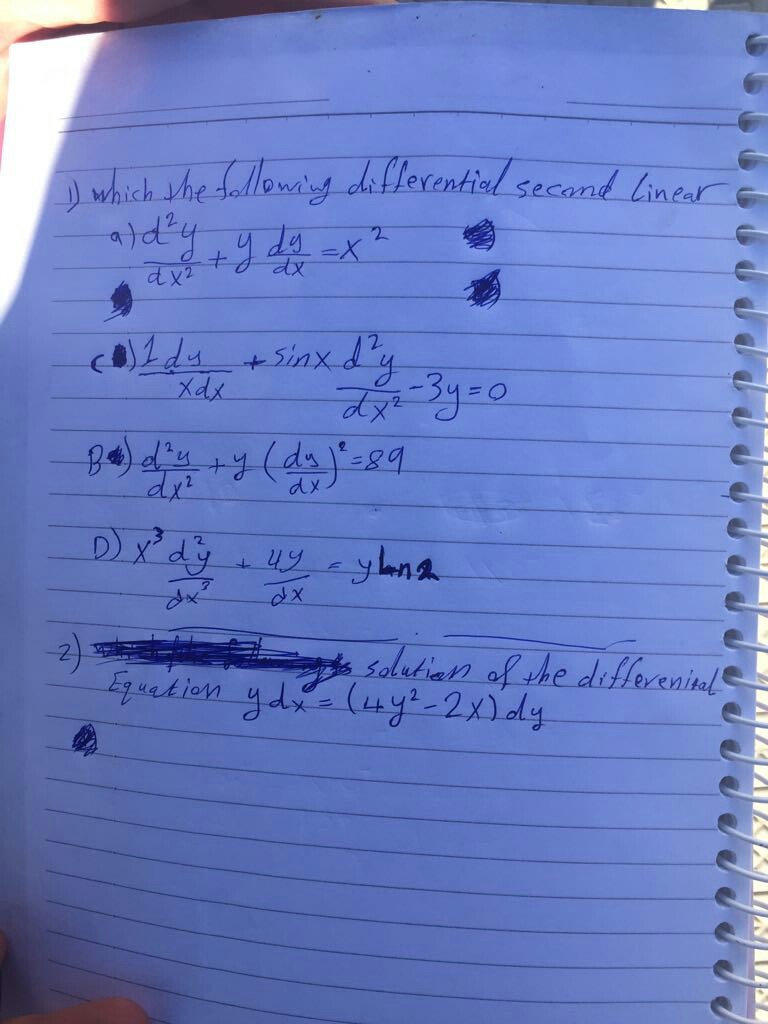 1) which the following differential second linear
a) d²y/dx² + y dy/dx = x²
C) 1 dy/x dx + sinx d²y/dx² - 3y = 0
B) d²y/dx² + y (dy/dx)² = 89
D) x³ d²y/dx³ + 4y/dx = y Ln 2
2) solution of the differenital
Equation y dx = (4y² - 2x) dy